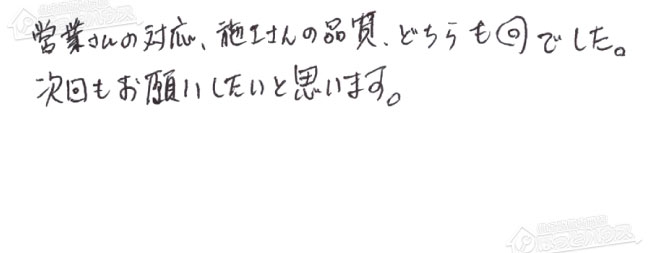 営業さんの対応、施工さんの品質、どちらも◎でした。
次回もお願いしたいと思います。